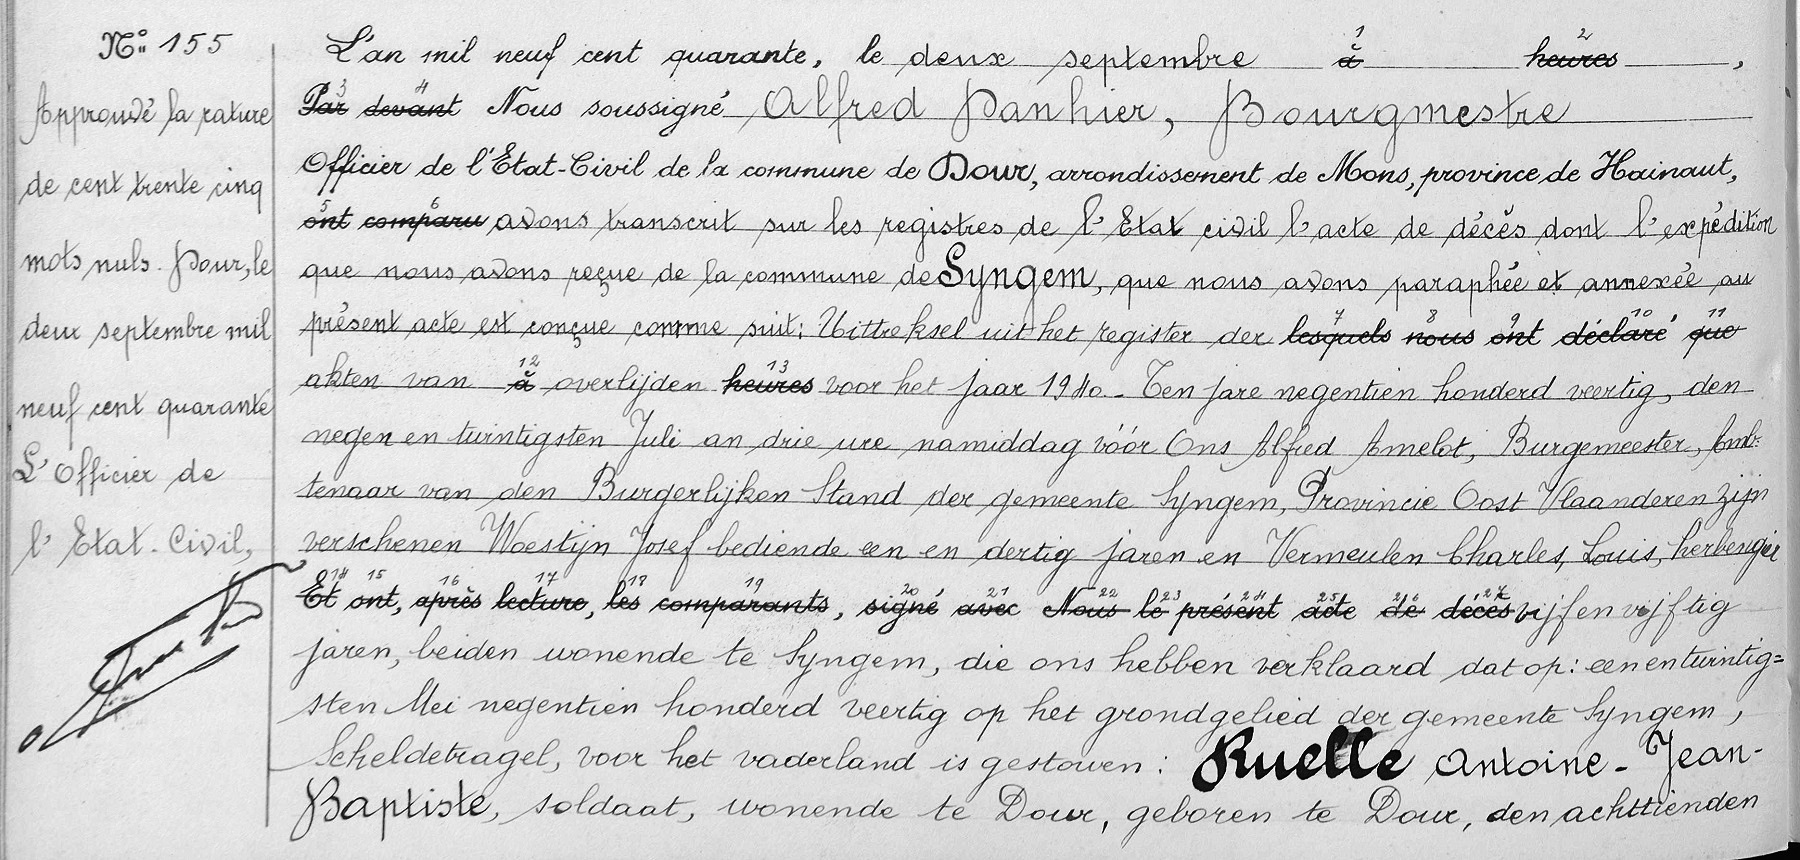 N° 155
Approuvé la rature
de cent trente cinq
mots nuls. Dour, le
deux septembre mil
neuf cent quarante
L'Officier de
l'Etat-Civil,
L'an mil neuf cent quarante, le deux septembre à heures,
Par devant Nous soussigné Alfred Danhier, Bourgmestre
Officier de l'Etat-Civil de la commune de Dour, arrondissement de Mons, province de Hainaut,
ont comparu avons transcrit sur les registres de l'Etat civil l'acte de décès dont l'expédition
que nous avons reçue de la commune de Syngem, que nous avons paraphée et annexée au
présent acte est conçue comme suit: Uittreksel uit het register der lesquels nous ont déclaré que
akten van à overlijden heures voor het jaar 1940.- Ten jare negentien honderd veertig, den
negen en twintigsten Juli an drie ure namiddag vóór Ons Alfred Amelot, Burgemeester, Amb-
tenaar van den Burgerlijken Stand der gemeente Syngem, Provincie Oost Vlaanderen zijn
verschenen Woestijn Josef bediende een en dertig jaren en Vermeulen Charles, Louis, herbergier
Et ont, après lecture, les comparants, signé avec Nous le présent acte de décès vijfenvijftig
jaren, beiden wonende te Syngem, die ons hebben verklaard dat op: eenentwintig=
sten Mei negentien honderd veertig op het grondgebied der gemeente Syngem,
Scheldetragel, voor het vaderland is gestorven: Ruelle Antoine-Jean-
Baptiste, soldaat, wonende te Dour, geboren te Dour, den achttienden